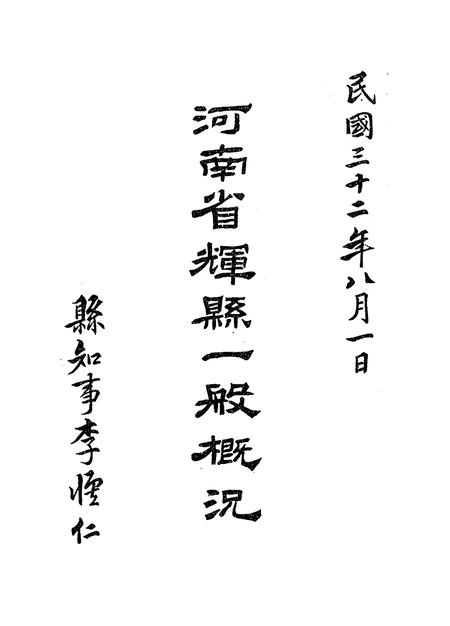 民國三十二年八月一日
河南省輝縣一般概況
縣知事李恒仁